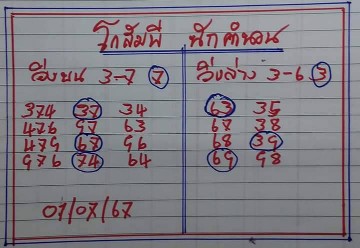 โกสัมพี นักคำนวน
วิ่งบน 3-7 7 วิ่งล่าง 3-6 3
374 37 34 63 35
476 97 63 67 38
479 67 96 68 39
976 74 64 69 98
01/07/67